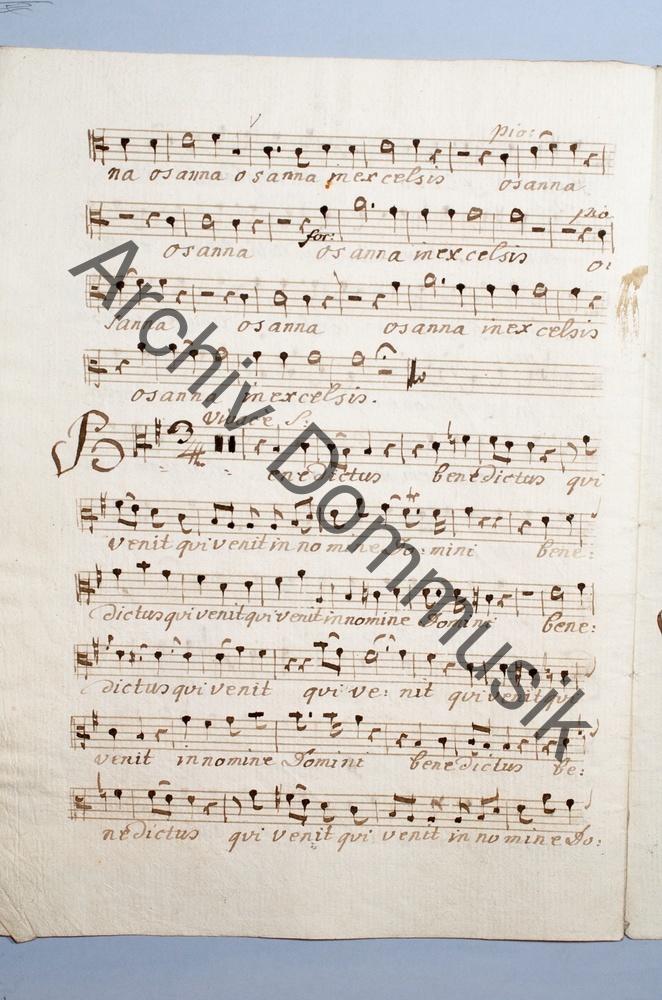 pio:
na osanna osanna in excelsis osanna
pio
for:
osanna osanna in excelsis o:
sanna osanna osanna in excelsis
osanna in excelsis.
B 3/4
enedictus benedictus qui
venit qui venit in nomine Do: mini bene:
dictus qui venit qui venit in nomine Domini bene:
dictus qui venit qui ve: nit qui venit qui
venit in nomine Domini benedictus be:
nedictus qui venit qui venit in nomine Do:
Archiv Dommusik